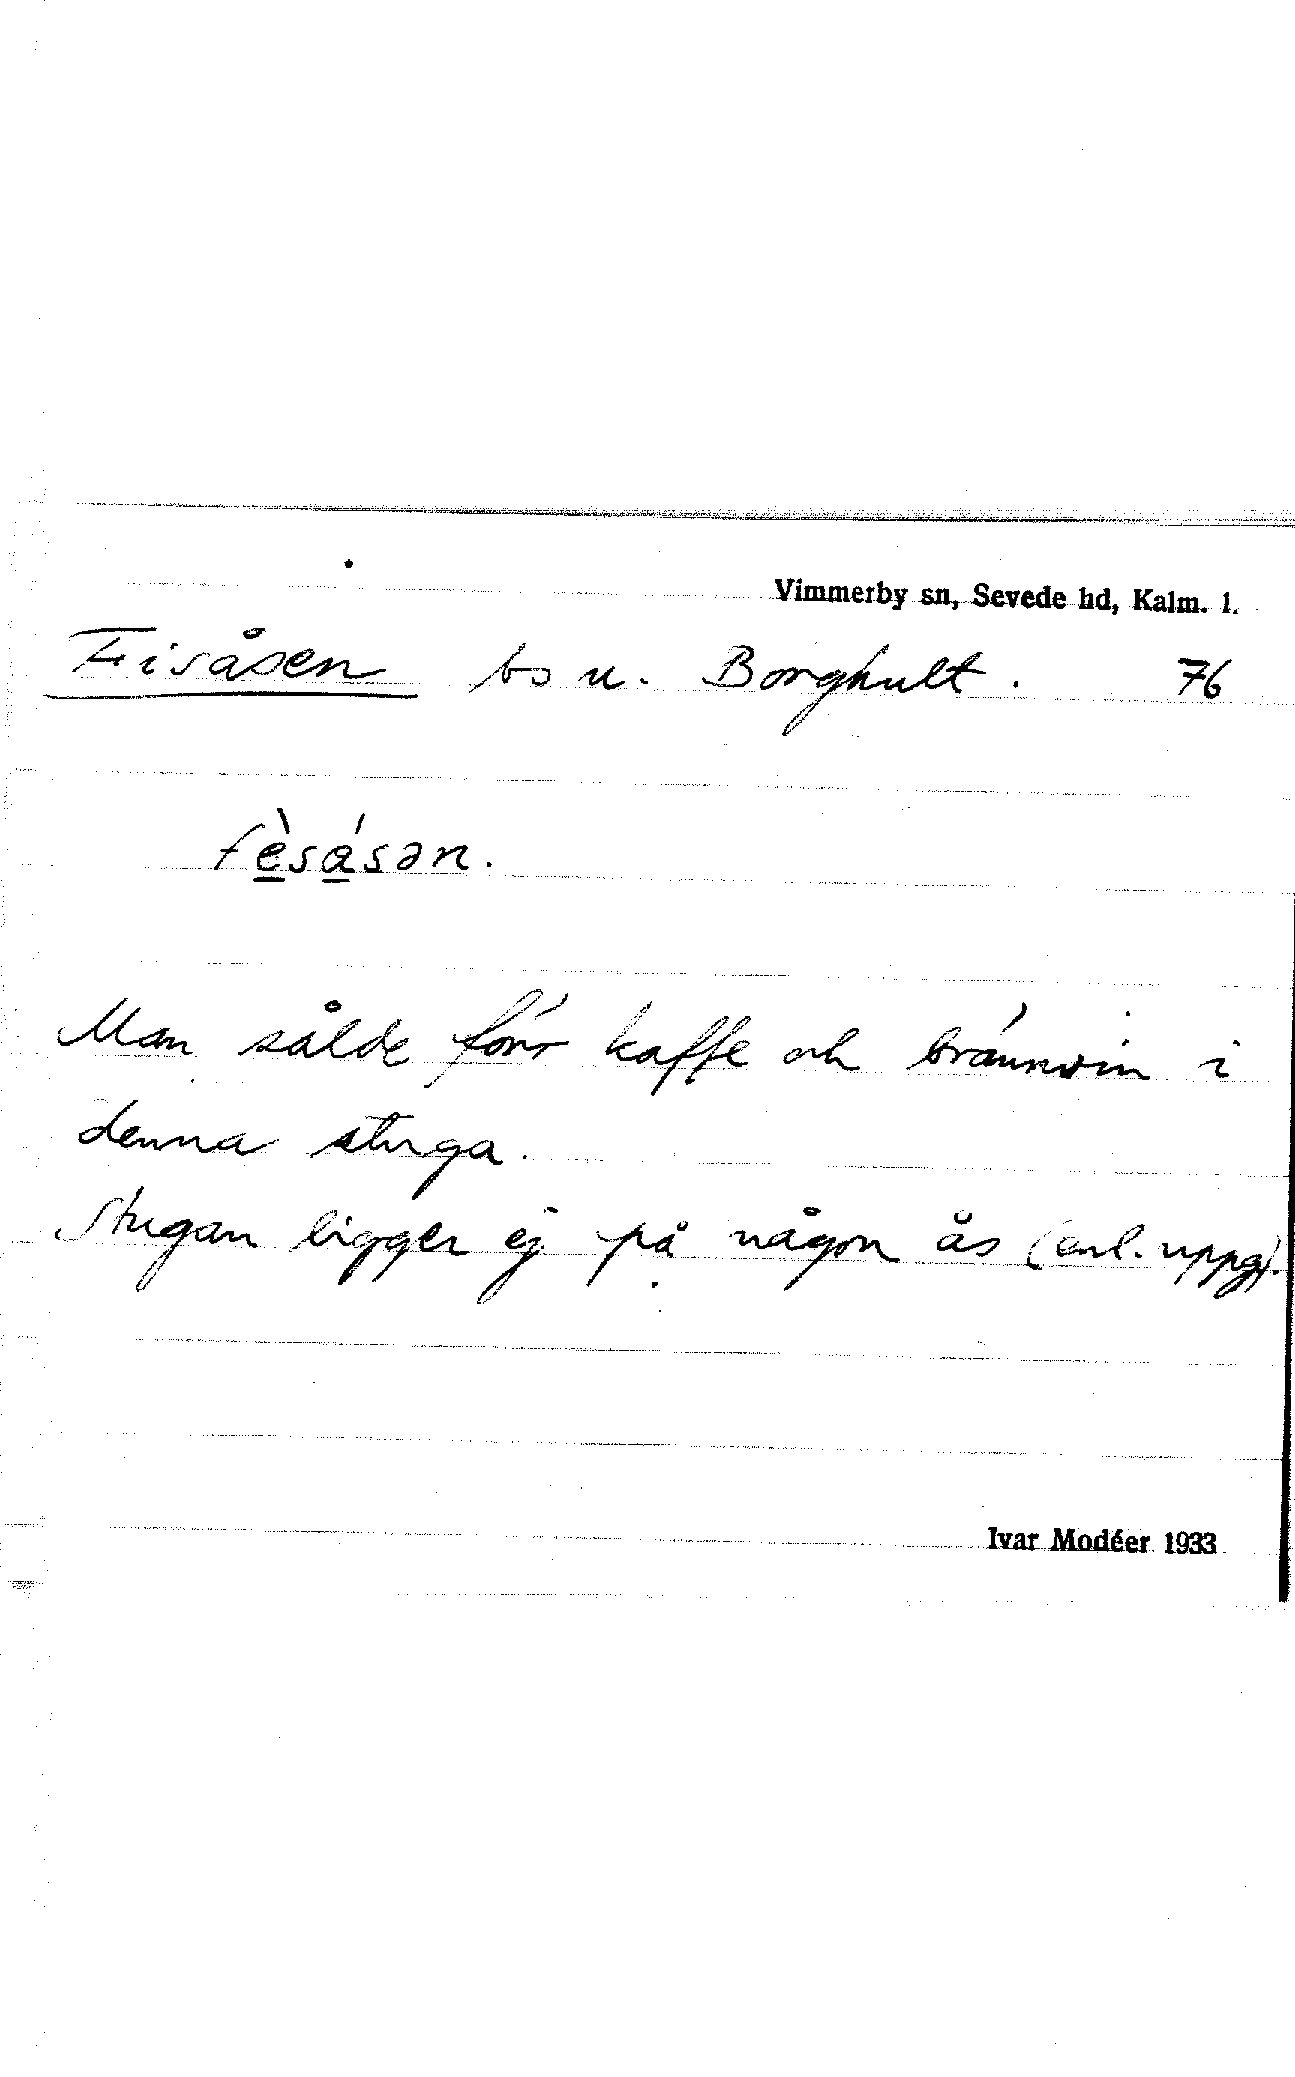 Vimmerby sn, Sevede hd, Kalm. l.
Fisåsen bs u. Borghult. 76
fèsásən.
Man sålde förr kaffe och brännvin i
denna stuga.
Stugan ligger ej på någon ås (enl. uppg).
Ivar Modéer 1933